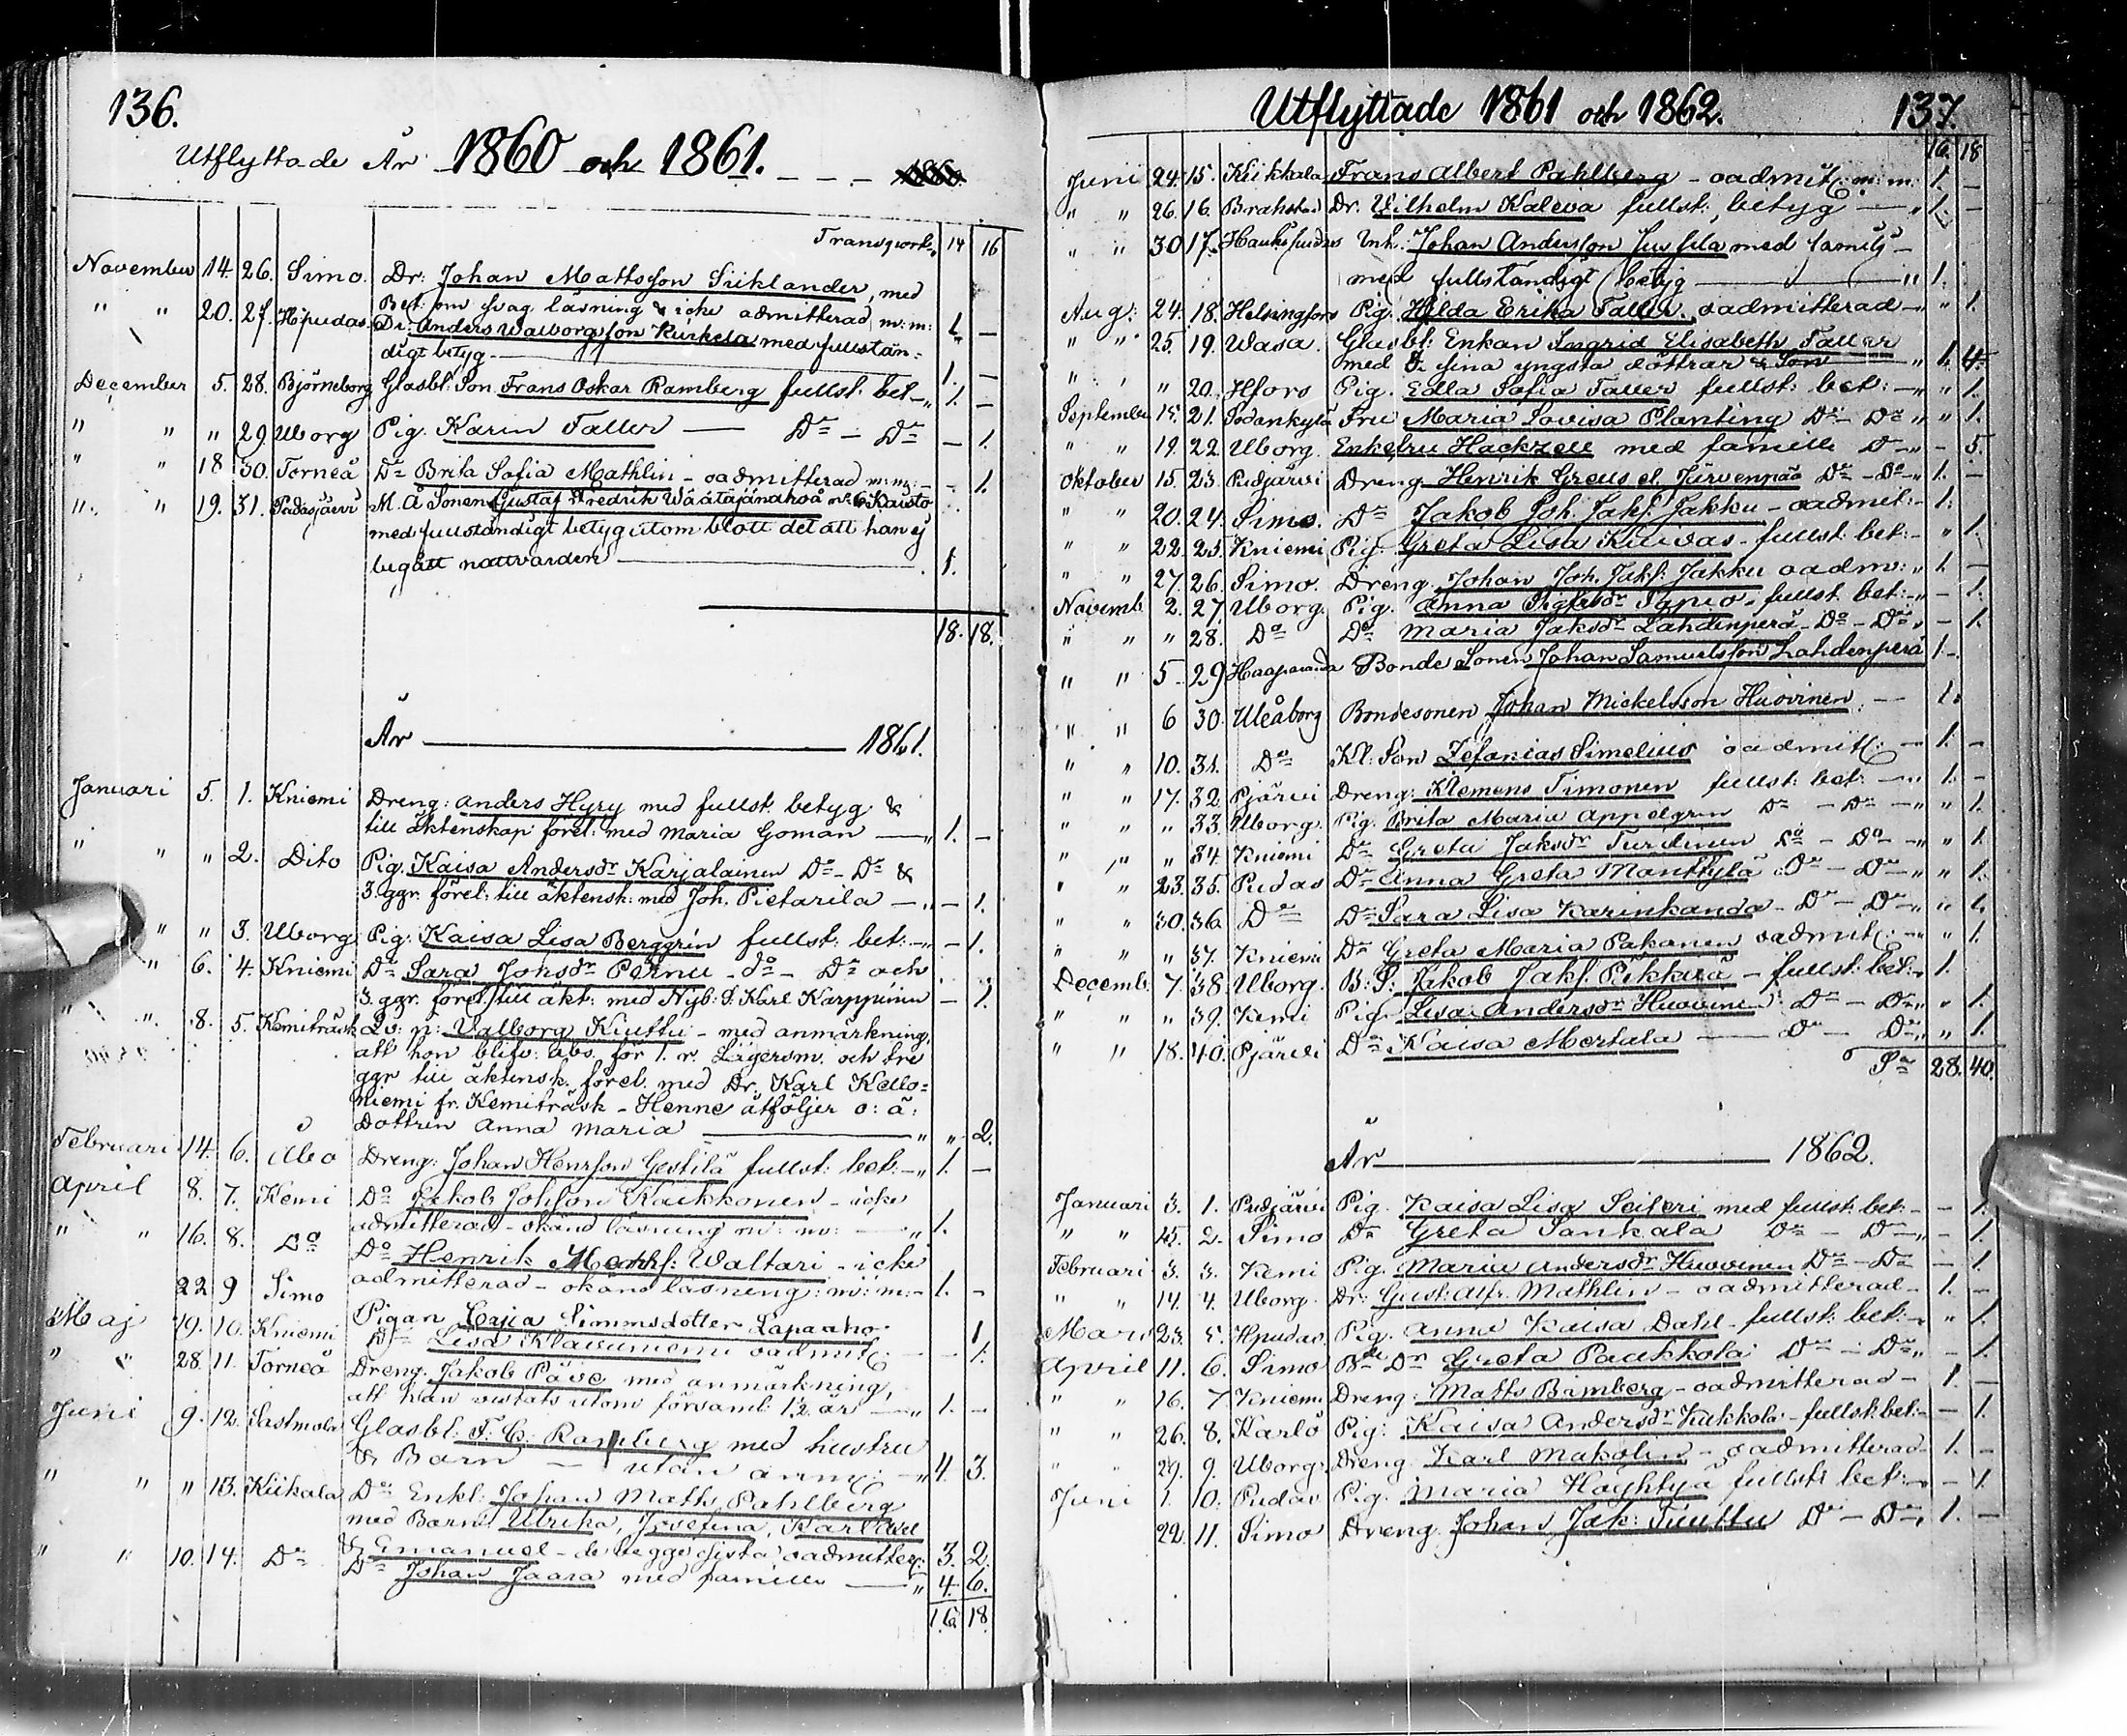 136.
Utflyttade År 1860 och 1861.
Transport 14 16
November 14. 26. Simo. Dr: Johan Mattsson Siiklander, med
Bet: om svag läsning & icke admitterad m: m: 1. —
" " 20. 27. Hpudas. Dr: Anders Walborgsson Kurkela med fullstän-
digt betyg. — 1. —
December 5. 28. Björneborg Glasbl: Son Frans Oskar Ramberg fullst. bet — " 1. —
" " " 29 Uborg Pig. Karin Faller — Do — Do — 1.
" " 18 30. Torneå Do Brita Sofia Mathlin - oadmitterad m: m: — 1.
" " 19. 31. Padasjärvi M. Å Sonen Gustaf Fredrik Wäätäjänahoå
med fullständigt betyg utom blott det att han ej
begått nattvarden — 1.
18. 18.
År — 1861.
Januari 5. 1. Kniemi Dreng: Anders Hyry med fullst. betyg &
till äktenskap förel: med Maria Goman — " 1. —
" " " 2. Dito Pig. Kaisa Andersdr Karjalainen Do - Do &
3. ggr. förel: till äktensk: med Joh. Pietarila — " — 1.
" " 3. Uborg Pig: Kaisa Lisa Berggrin fullst: bet: — " — 1.
" 6. 4. Kniemi Do Sara Johsdr Pernu - do - Do och
3. ggr. förel. till äkt: med Nyb: S. Karl Karppinen — 1.
" " 8. 5. Kemiträsk Lö: n: Valborg Kiuttu - med anmärkning,
att hon blifv: abs. för 1. r. Lägersm. och tre
ggr till äktensk. förel. med Dr. Karl Kello-
niemi fr. Kemiträsk - Henne åtföljer o: ä:
Dottren Anna Maria — " " 2.
Februari 14. 6. Åbo Dreng: Johan Henrsson Gestilä fullst: bet: — " 1. —
April 8. 7. Kemi Do Jakob Johsson Kaikkonen - icke
admitterad - okänd läsning m: m: — " 1.
" " 16. 8. Do Do Henrik Matts: Waltari - icke
admitterad - okänd läsning: m: m: — 1. —
22 9 Simo Pigan Cajsa Simmsdotter Lapaaho 1
Maj 19. 10. Kniemi Do Lisa Klaavuniemi oadmit: — — 1.
" " 28. 11. Torneå Dreng. Jakob Päve med anmärkning,
att han vistats utom församl: 12 år — " 1. —
Juni 9. 12. Sastmola Glasbl: F: C: Ramberg med hustru
& Barn — utan anm: — " 4. 3.
" " " 13. Kiikala Do Enkl: Johan Matts Pahlberg
med Barn: Ulrika, Josefina, Karl Axel
& Emanuel - de begge sista oadmitter: 3. 2.
" " 10. 14. Do Do Johan Jaara med famille — " 4. 6.
16. 18
Utflyttade 1861 och 1862. 137.
16. 18
Juni 24. 15. Kiikkala Frans Albert Pahlberg - oadmit: m: m: 1. —
" " 26. 16. Brahestad Dr. Vilhelm Kaleva fullst: betyg — " 1. —
" " 30 17. Haukipudas Inh: Johan Andersson med familj -
med fullständigt betyg — " 1.
Aug: 24. 18. Helsingfors Pig. Hilda Erika Faller. oadmitterad — " 1.
" " 25. 19. Wasa. Glasbl: Enkan Ingrid Elisabeth Faller
med sina yngsta döttrar & Son — " 1. 4.
" " " 20. Hfors Pig. Edla Sofia Faller fullst: bet: — " 1.
September 15. 21. Sodankylä Fru Maria Lovisa Planting Do - Do " " 1.
" " 19. 22. Uborg. Enkefru Hackzell med familie Do — " - 5.
Oktober 15. 23. Pudjärvi Dreng Henrik Greus el. Järvenpää Do - Do — " 1. —
" " 20. 24. Simo. Do Jakob Joh. Jakk: Jakku - oadmit: - 1.
" " 22. 25. Kniemi Pig. Greta Lisa Kuivas - fullst: bet: — " 1.
" " 27. 26. Simo. Dreng. Johan Joh. Jakk: Jakku oadm: " 1. —
Novemb. 2. 27. Uborg. Pig. Anna Sigfrsdr Sapio - fullst. bet: — " — 1.
" " " 28. Do Do Maria Jaksdr Lahdenperä - Do - Do " — 1.
" " 5. 29 Haaparanda Bonde Sonen Johan Samuelsson Lahdenperä 1. -
" " 6 30. Uleåborg Bondesonen Johan Mickelsson Huovinen. — 1.
" " 10. 31. Do Kl: Son Zefanias Simelius oadmit: — 1. —
" " 17. 32. Pjärvi Dreng: Klemens Timonen fullst: bet: — " 1. —
" " " 33. Uborg. Pig. Brita Maria Appelgren Do - Do — " " 1.
" " " 34. Kniemi Do Greta Jaksdr Turdinen Do - Do — " " 1.
" " 23. 35. Pudas Do Anna Greta Mänttylä Do - Do — " " 1.
" " 30. 36. Do Do Sara Lisa Karinkanda - Do - Do " " 1.
" " " 37. Kniemi Do Greta Maria Pakanen oadmit: — " " 1.
Decemb. 7. 38. Uborg. B: S: Jakob Jakk: Pikkua - fullst: bet: - 1.
" " " 39. Kemi Pig. Lisa Andersdr Huovinen Do - Do " " 1.
" " 18. 40. Pjärvi Do Kaisa Mertala — Do - Do " " 1.
Sa 28. 40.
År — 1862.
Januari 3. 1. Pudjärvi Pig. Kaisa Lisa Seiperi med fullst: bet: — — 1.
" " 15. 2. Simo Do Greta Sankala Do - Do — " — 1.
Februari 3. 3. Kemi Pig. Maria Andersdr Huovinen Do - Do — 1.
" " 14. 4. Uborg. Dr: Gust: Alfr. Mathlin - oadmitterad — 1. —
Mars 23. 5. Hpudas. Pig. Anna Kaisa Dahl - fullst: bet: — " " 1.
April 11. 6. Simo Bde Dr Greta Paukkola Do - Do " — 1.
" " 16. 7 Kniemi Dreng: Matts Bimberg - oadmitterad — 1. —
" " 26. 8. Karlö Pig: Kaisa Andersdr Kukkola - fullst: bet: — — 1.
" " 29. 9. Uborg: Dreng Karl Makolin - oadmitterad — 1. —
Juni 1. 10. Pudas Pig. Maria Höyhtyä fullst: bet: — — 1.
22. 11. Simo Dreng. Johan Jak: Tuuttu Do - Do " 1. —